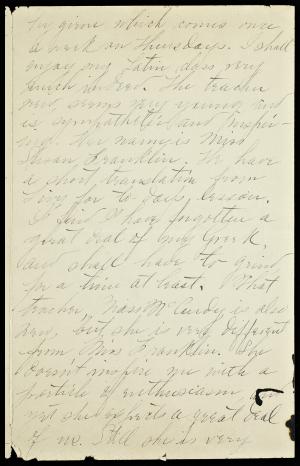 is given which comes once
a week on Thursdays. I shall
enjoy my Latin class very
much indeed. The teacher
new, seems very young and
is sympathetic and inspir-
ing. Her name is Miss
Susan Franklin. We have
a short translation from
Livy for to day's lesson.
I find I have forgotten a
great deal of my Greek,
and shall have to grind
for a time at least. That
teacher, Miss McCurdy is also
new, but she is very different
from Miss Franklin. She
doesn't inspire me with a
particle of enthusiasm, and
yet she expects a great deal
of us. Still she is very